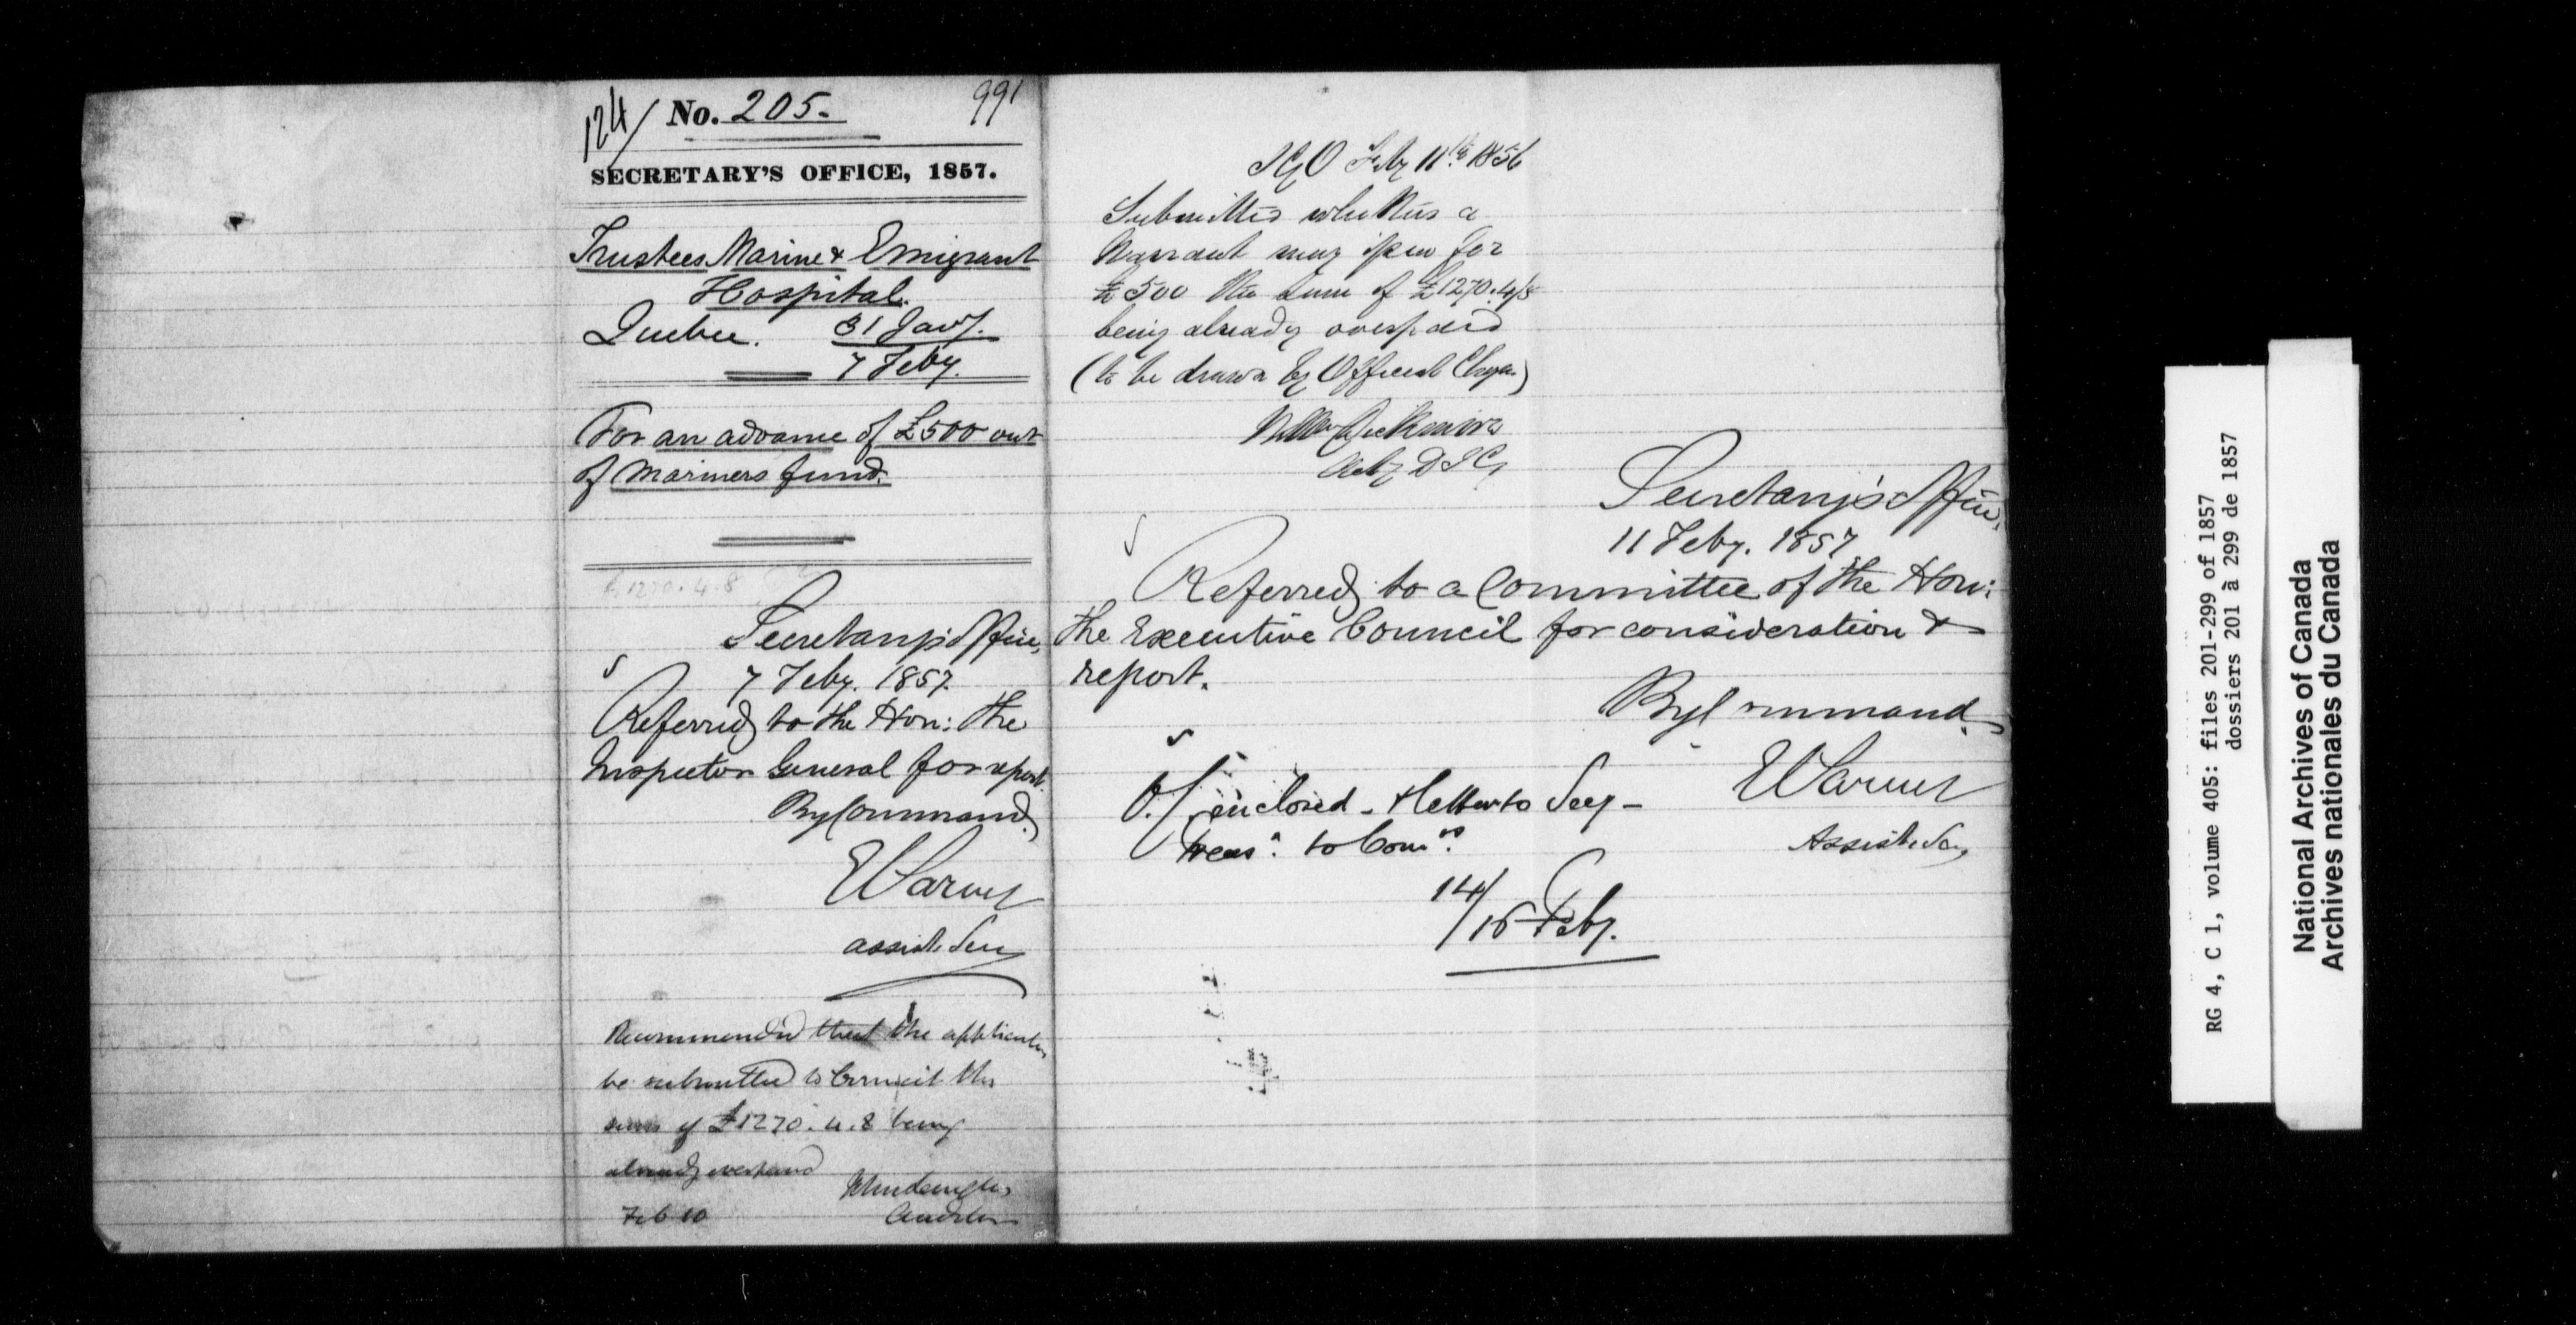 124/ No. 205. 991
SECRETARY'S OFFICE, 1857.
Trustees Marine & Emigrant
Hospital.
Quebec. 31 Jany.
7 Feby.
For an advance of £500 out
of Mariners fund.
£1270.4.8
Secretary's Office,
7 Feby. 1857.
Referred to the Hon: the
Inspector General for report.
By Command,
E Parent
assist. Secy
Recommended that the application
be submitted to Council the
sum of £1270.4.8 being
already overpaid
Feb 10
Auditor
IGO Feby 11th 1856
Submitted whether a
Warrant may issue for
£500 the sum of £1270.4/8
being already overpaid
(to be drawn by Official Cheque)
Wm Dickinson
Actg D I G
Secretary's Office,
11 Feby. 1857
Referred to a Committee of the Hon:
the Executive Council for consideration &
report.
By Command,
E Parent
Assist. Secy
O.C. enclosed - & letter to Secy -
Treasr. to Comrs.
14/
/16 Feby.
RG 4, C 1, volume 405: files 201-299 of 1857
dossiers 201 à 299 de 1857
National Archives of Canada
Archives nationales du Canada